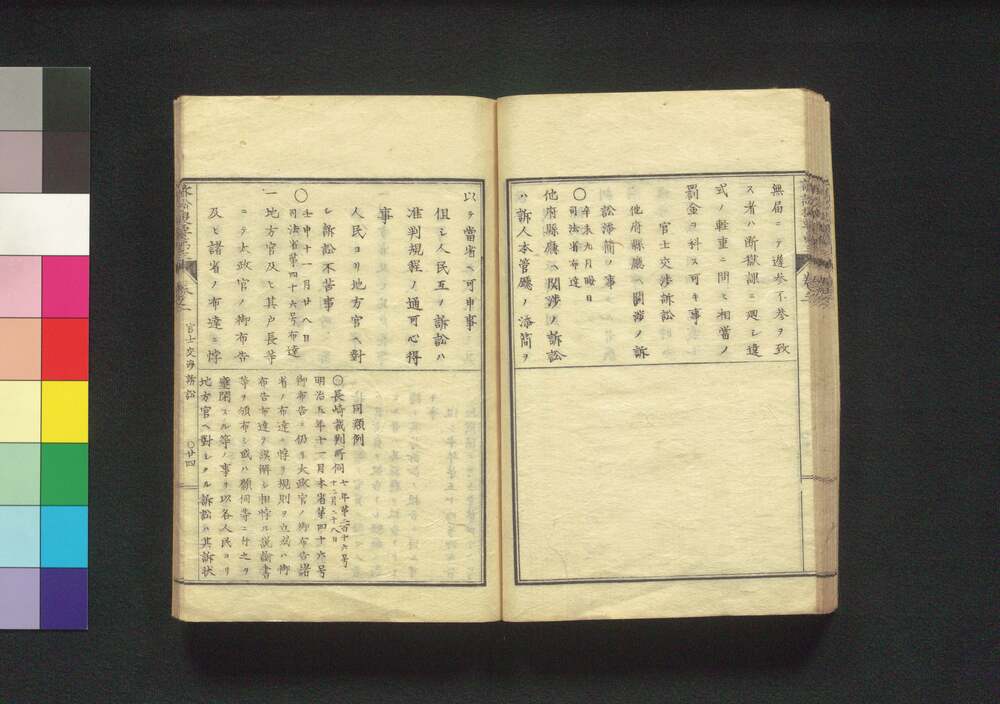 無届ニテ遅参不参ヲ致
ス者ハ断獄課ニ廻シ違
式ノ軽重ニ問ヒ相當ノ
罰金ヲ科ス可キ事
官士交渉訴訟
他府縣廳ヘ関渉ノ訴
訟添簡ノ事
〇辛未九月晦日
司法省布達
他府縣廳ヘ関渉ノ訴訟
ハ訴人本管廳ノ添簡ヲ
以テ當省ヘ可申事
但シ人民互ノ訴訟ハ
准判規程ノ通可心得
事
人民ヨリ地方官ヘ對
シ訴訟不苦事
〇壬申十一月廿八日
司法省第四十六号布達
一地方官及ヒ其戸長等
ニテ太政官ノ御布告
及ヒ諸省ノ布達ニ悖
同類例
〇長崎裁判所伺 七年第二百十六号
十二月二十八日
明治五年十一月本省第四十六号
御布告ニ仍リ太政官ノ御布告諸
省ノ布達ニ悖リ規則ヲ立或ハ御
布告布達ヲ誤解シ相悖ル説諭書
等ヲ頒布シ或ハ願伺等ニ付之ヲ
壅閉スル等ノ事ヲ以各人民ヨリ
地方官ヘ對シタル訴訟ハ其訴状
官士交渉訴訟
〇廿四